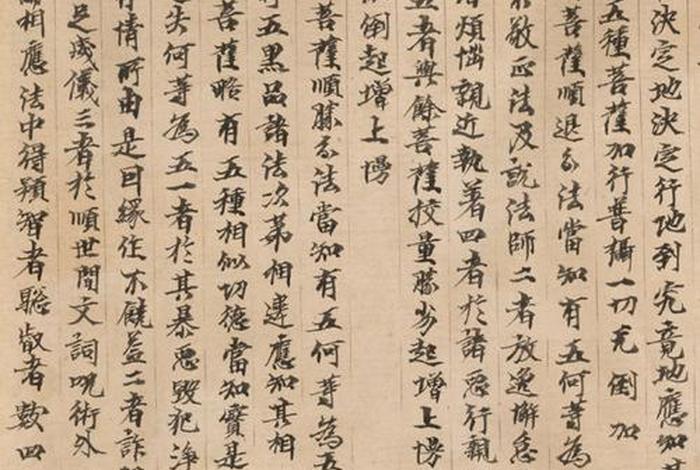 決定地決定行地到究竟地應知
五種菩薩加行普攝一切无倒加
菩薩順退分法當知有五何等為
敬正法及說法師二者放逸懈怠
煩惱親近執著四者於諸惡行親
五者與餘菩薩挍量勝劣起增上慢
倒起增上慢
菩薩順勝分法當知有五何等為五
五黑品諸法次第相違應知其相
菩薩略有五種相似功德當知實是
失何等為五一者於其暴惡毀犯淨
有情所由是因緣住不饒益二者詐
足威儀三者於順世間文詞呪術外
相應法中得預智者聡叡者數四